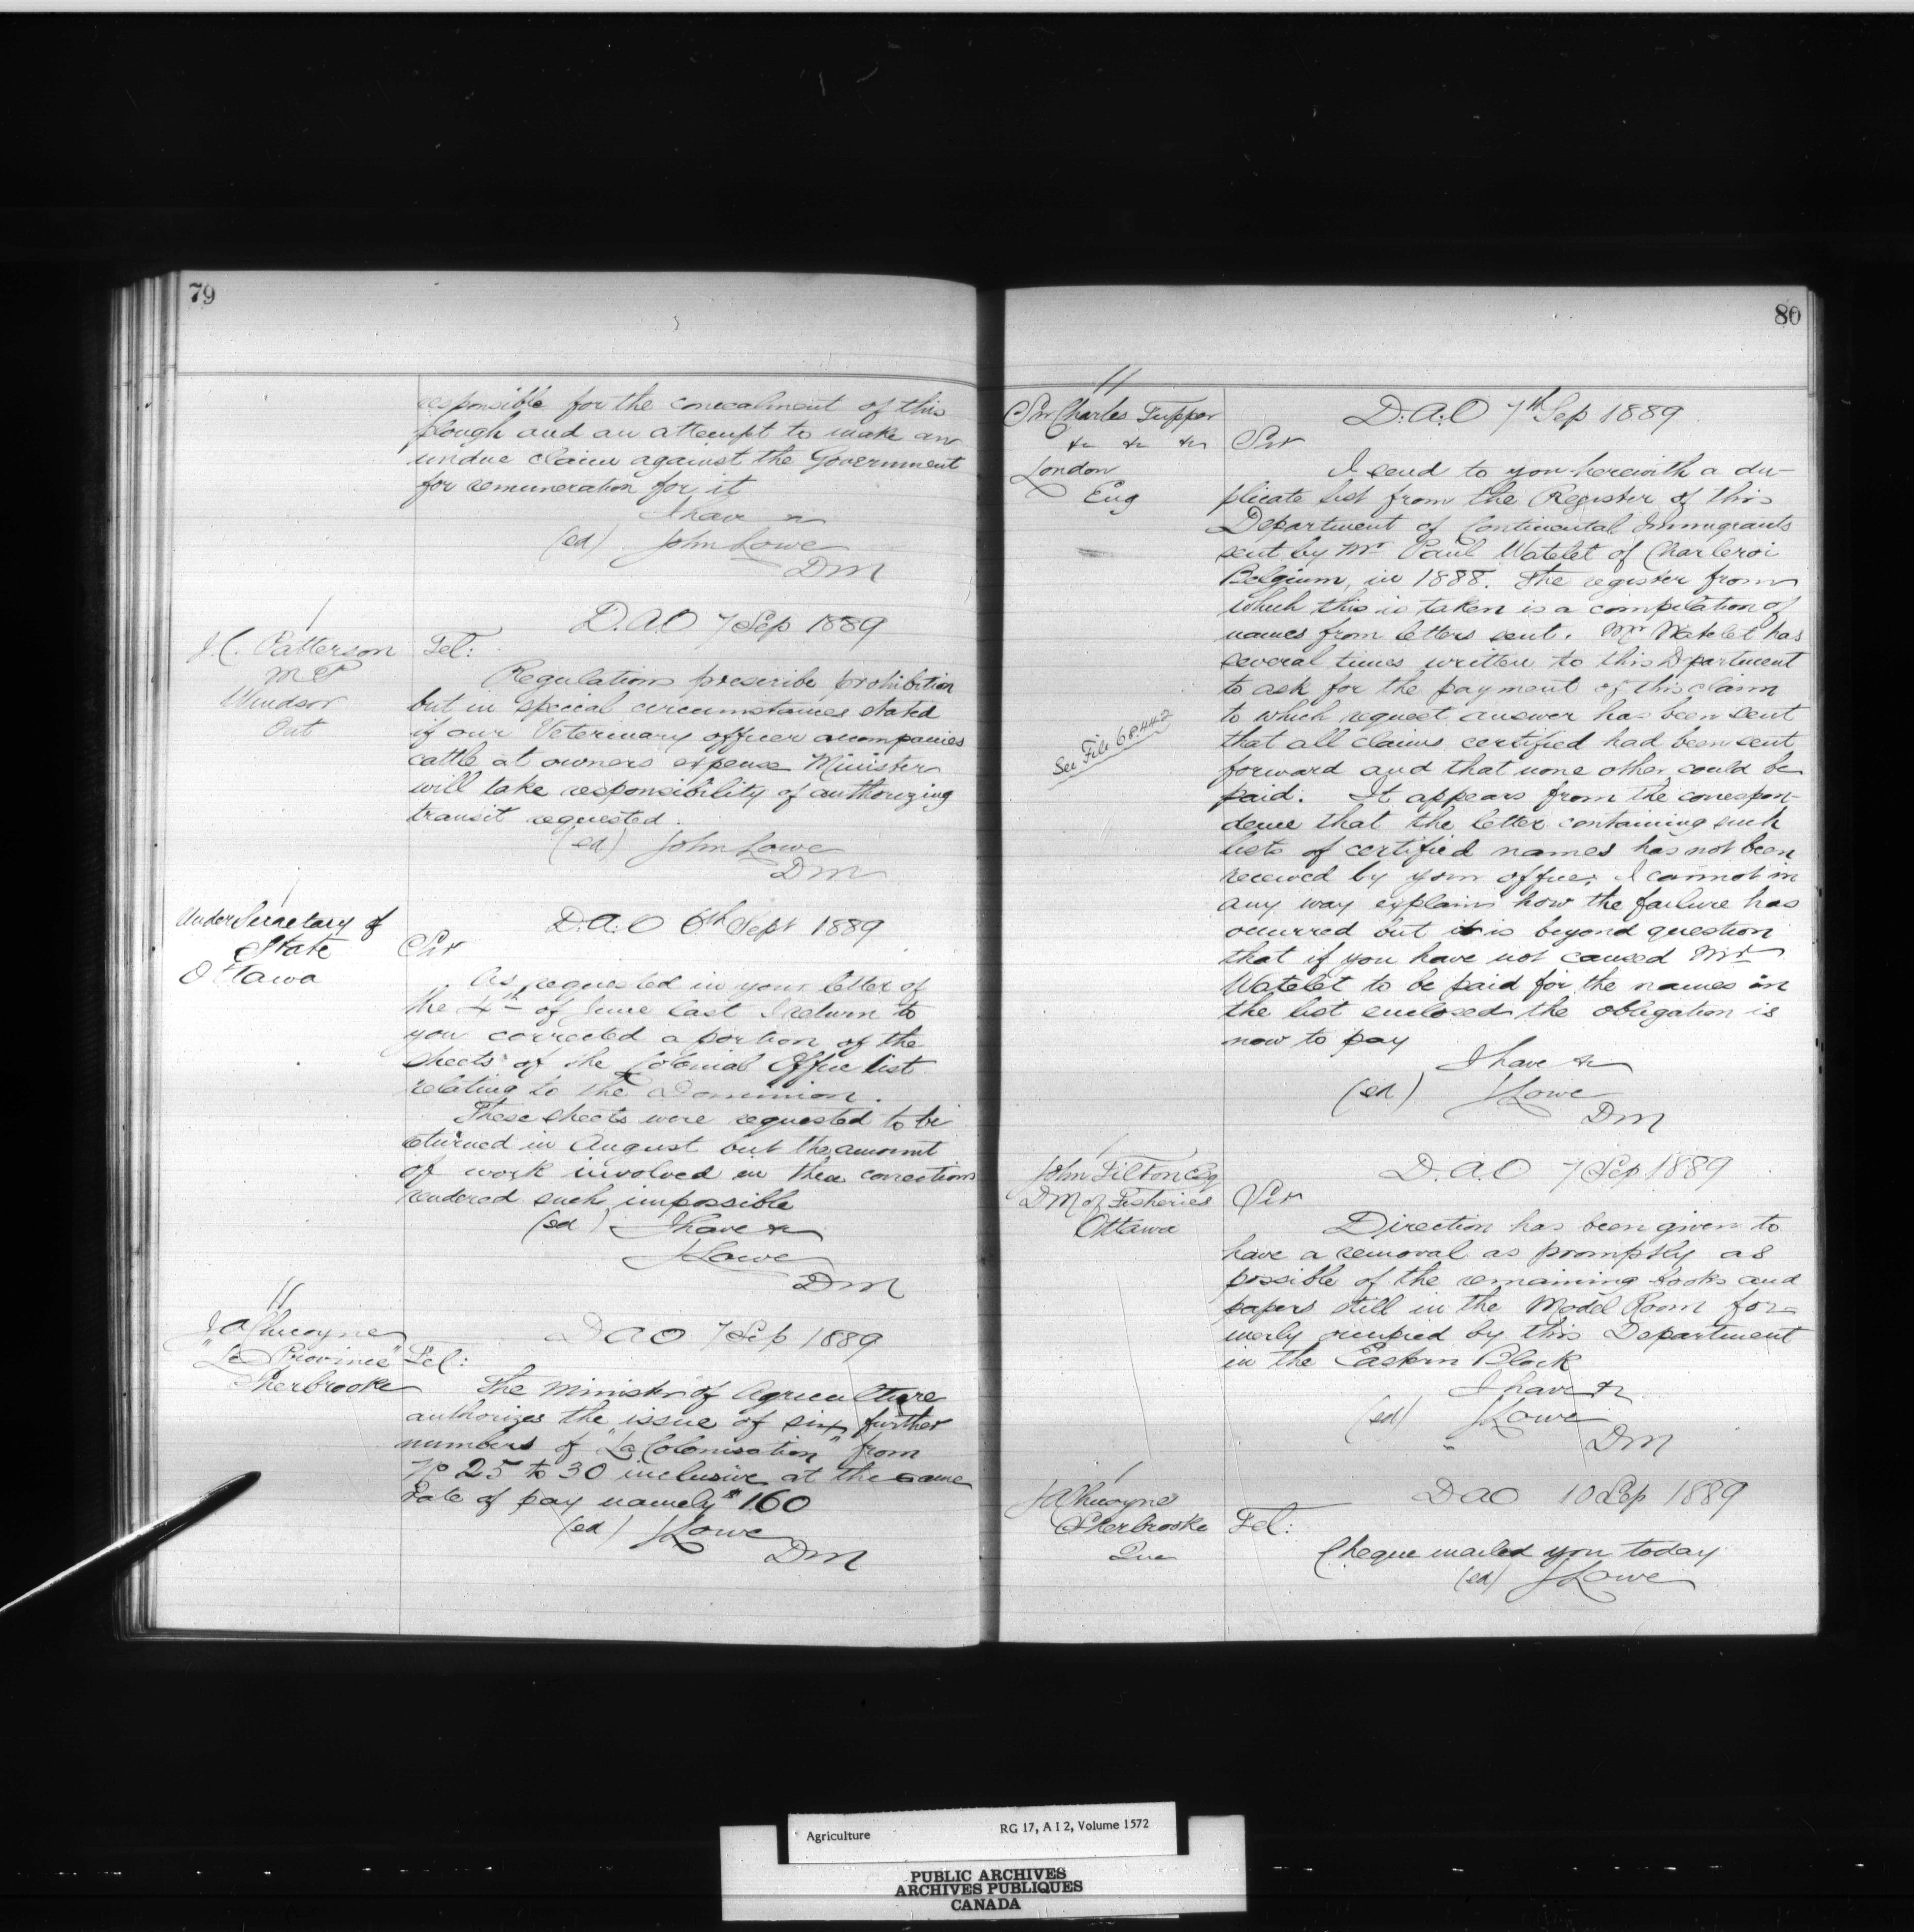 79
responsible for the concealment of this
plough and an attempt to make an
undue claim against the Government
for remuneration for it
I have &c
(sd) John Lowe
DM
D.A.O 7 Sep 1889
J.C. Patterson
M P
Windsor
Ont
Tel:
Regulations prescribe prohibition
but in special circumstances stated
if our Veterinary officer accompanies
cattle at owners expense Minister
will take responsibility of authorizing
transit requested.
(sd) John Lowe
DM
D.A.O 6th Sept 1889
Under Secretary of
State
Ottawa
Sir
As requested in your letter of
the 4th of June last I return to
you corrected a portion of the
sheets of the Colonial Office list
relating to the Dominion.
These sheets were requested to be
returned in August but the amount
of work involved in their corrections
rendered such impossible
(sd) I have &c
J Lowe
DM
DAO 7 Sep 1889
J A Chicoyne
"La Province"
Sherbrooke
Tel:
The Minister of Agriculture
authorizes the issue of six further
numbers of "La Colonisation" from
No 25 to 30 inclusive at the same
Rate of pay namely $160
(sd) J Lowe
DM
80
11
Sir Charles Tupper
&c &c &c
London
Eng
See File 68.442
D.A.O 7th Sep 1889
Sir
I send to you herewith a du-
plicate list from the Register of this
Department of Continental Immigrants
sent by Mr Paul Watelet of Charleroi
Belgium, in 1888. The register from
which this is taken is a compilation of
names from letters sent. Mr Watelet has
several times written to this Department
to ask for the payment of this claim
to which request answer has been sent
that all claims certified had been sent
forward and that none other could be
paid. It appears from the correspon-
dence that the letter containing such
lists of certified names has not been
received by your office; I cannot in
any way explain how the failure has
occurred but it is beyond question
that if you have not caused Mr
Watelet to be paid for the names in
the list enclosed the obligation is
now to pay
I have &c
(sd) J Lowe
DM
D.A.O 7 Sep 1889
John Tilton Esq
DM of Fisheries
Ottawa
Sir
Direction has been given to
have a removal as promptly as
possible of the remaining books and
papers still in the Model Room for-
merly occupied by this Department
in the Eastern Block
I have &c
(sd) J Lowe
DM
DAO 10 Sep 1889
J A Chicoyne
Sherbrooke
Que
Tel:
Cheque mailed you today
(sd) J Lowe
Agriculture RG 17, A I 2, Volume 1572
PUBLIC ARCHIVES
ARCHIVES PUBLIQUES
CANADA